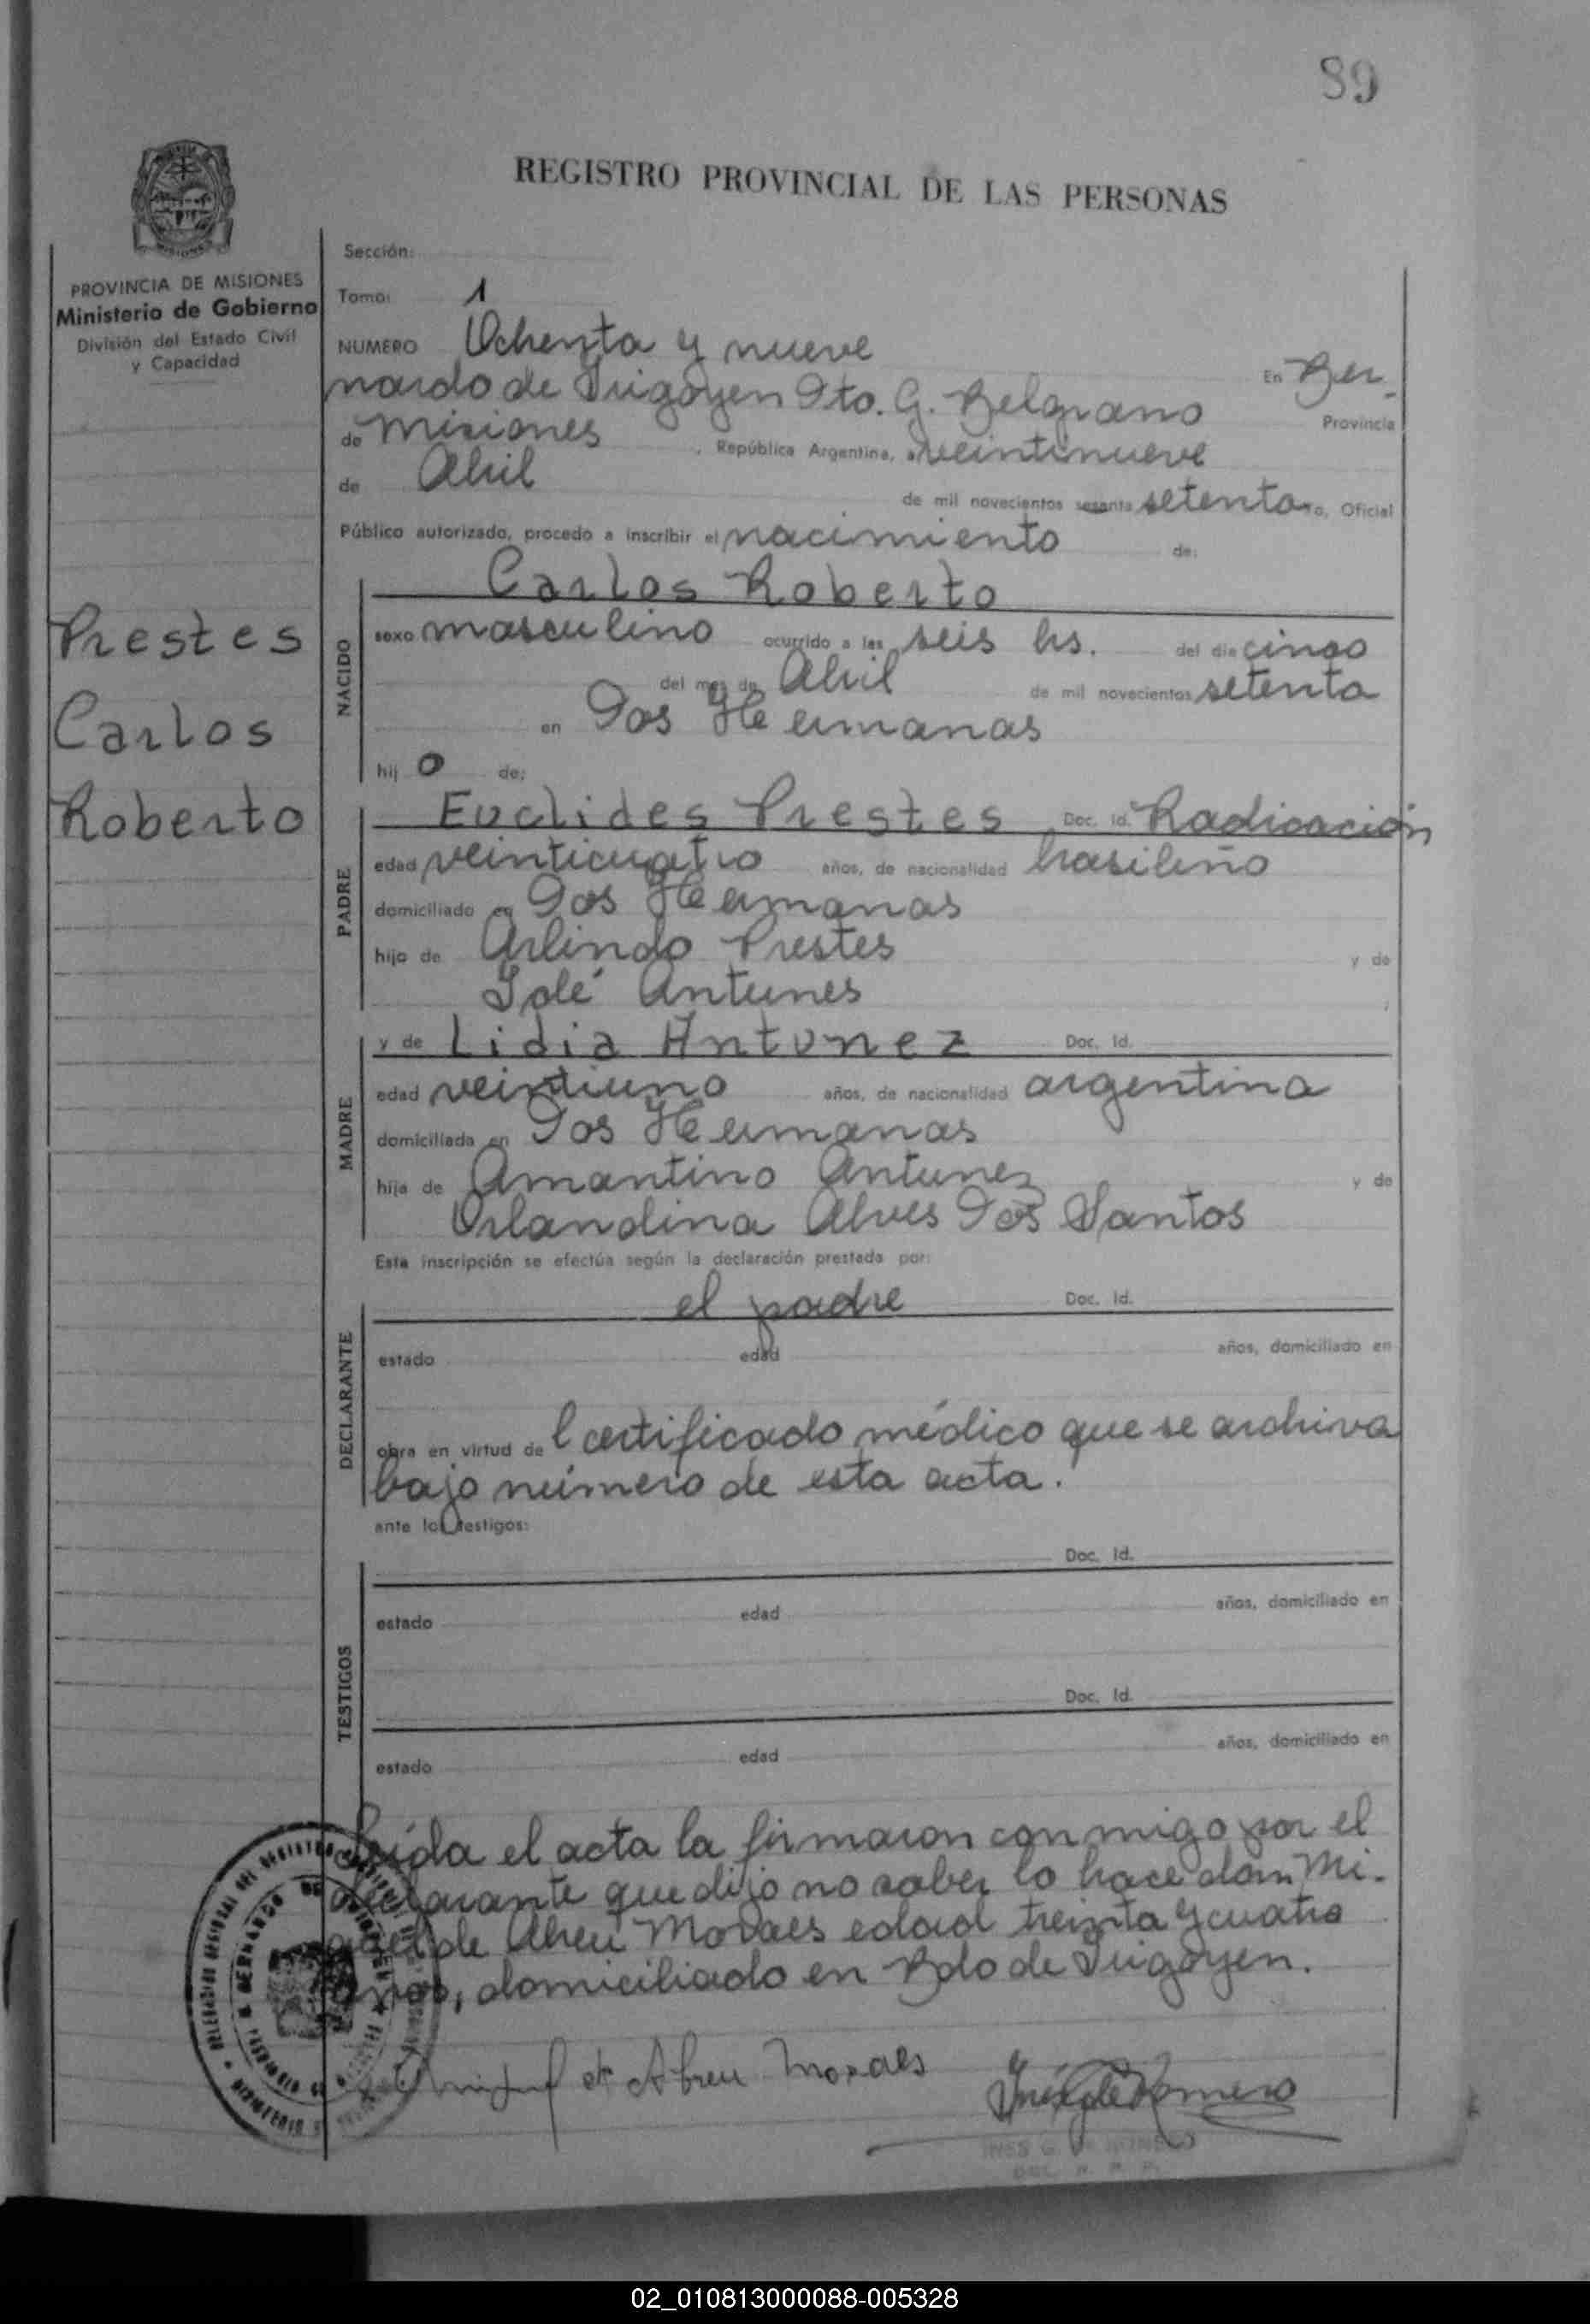 89
REGISTRO PROVINCIAL DE LAS PERSONAS
MISIONES
PROVINCIA DE MISIONES
Ministerio de Gobierno
División del Estado Civil
y Capacidad
Prestes
Carlos
Roberto
Sección:
Tomo: 1
NUMERO Ochenta y nueve
En Ber-
nardo de Irigoyen Dto. G. Belgrano
Provincia
de Misiones, República Argentina, a veintinueve
de Abril de mil novecientos sesenta setenta Yo, Oficial
Público autorizado, procedo a inscribir el nacimiento de:
NACIDO
Carlos Roberto
sexo masculino ocurrido a las seis hs. del día cinco
del mes de Abril de mil novecientos setenta
en Dos Hermanas
hij o de:
PADRE
Euclides Prestes Doc. Id. Radicación
edad veinticuatro años, de nacionalidad brasileño
domiciliado en Dos Hermanas
hijo de Arlindo Prestes y de
Iolé Antunes
MADRE
y de Lidia Antunez Doc. Id.
edad veintiuno años, de nacionalidad argentina
domiciliada en Dos Hermanas
hija de Amantino Antunez y de
Orlandina Alves Dos Santos
Esta inscripción se efectúa según la declaración prestada por:
DECLARANTE
el padre Doc. Id.
estado edad años, domiciliado en
obra en virtud de l certificado médico que se archiva
bajo número de esta acta.
ante los testigos:
TESTIGOS
Doc. Id.
estado edad años, domiciliado en
Doc. Id.
estado edad años, domiciliado en
Leída el acta la firmaron conmigo por el
declarante que dijo no saber lo hace don Mi-
guel de Abreu Moraes edad treinta y cuatro
años, domiciliado en Bdo de Irigoyen.
Miguel de Abreu Moraes
Inés G de Romero
INES G. DE ROMERO
02_010813000088-005328